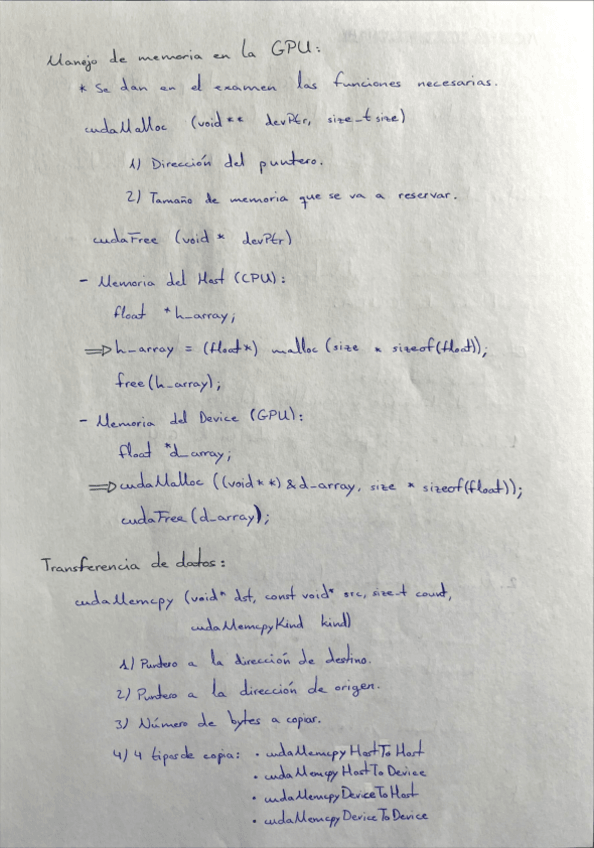 Manejo de memoria en la GPU:
* Se dan en el examen las funciones necesarias.
cudaMalloc (void ** devPtr, size_t size)
1) Dirección del puntero.
2) Tamaño de memoria que se va a reservar.
cudaFree (void * devPtr)
- Memoria del Host (CPU):
float *h_array;
⇒ h_array = (float*) malloc (size * sizeof(float));
free(h_array);
- Memoria del Device (GPU):
float *d_array;
⇒ cudaMalloc ((void**) &d_array, size * sizeof(float));
cudaFree(d_array);
Transferencia de datos:
cudaMemcpy (void* dst, const void* src, size_t count,
cudaMemcpyKind kind)
1) Puntero a la dirección de destino.
2) Puntero a la dirección de origen.
3) Número de bytes a copiar.
4) 4 tipos de copia: · cudaMemcpyHostToHost
· cudaMemcpyHostToDevice
· cudaMemcpyDeviceToHost
· cudaMemcpyDeviceToDevice